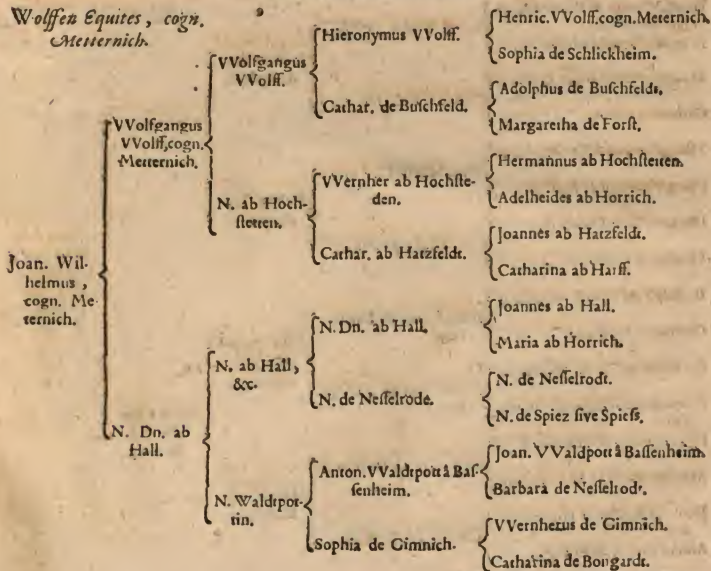 Wolffen Equites, cogn.
Metternich.
Joan. Wil-
helmus,
cogn. Me-
ternich.
VVolfgangus
VVolff, cogn.
Metternich.
N. Dn. ab
Hall.
VVolfgangus
VVolff.
N. ab Hoch-
stetten.
N. ab Hall,
&c.
N. Waldtpot-
tin.
Hieronymus VVolff.
Cathar. de Buschfeld.
VVernher ab Hochste-
den.
Cathar. ab Hatzfeldt.
N. Dn. ab Hall.
N. de Nesselrode.
Anton. VValdtpott â Bas-
senheim.
Sophia de Gimnich.
Henric. VVolff. cogn. Meternich.
Sophia de Schlickheim.
Adolphus de Buschfeldt.
Margaretha de Forst.
Hermannus ab Hochstetten.
Adelheides ab Horrich.
Joannes ab Hatzfeldt.
Catharina ab Harff.
Joannes ab Hall.
Maria ab Horrich.
N. de Nesselrodt.
N. de Spiez sive Spiess.
Joan. VValdpott â Bassenheim.
Barbara de Nesselrodt.
VVernherus de Gimnich.
Catharina de Bongardt.